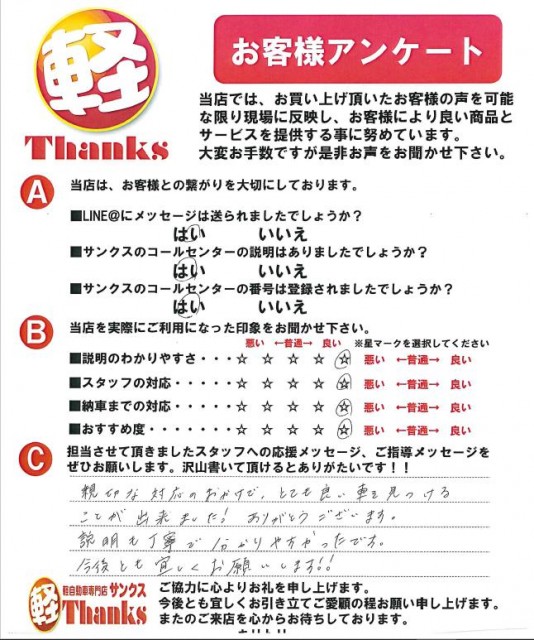 軽
Thanks
お客様アンケート
当店では、お買い上げ頂いたお客様の声を可能
な限り現場に反映し、お客様により良い商品と
サービスを提供する事に努めています。
大変お手数ですが是非お声をお聞かせ下さい。
A 当店は、お客様との繋がりを大切にしております。
■LINE@にメッセージは送られましたでしょうか？
はい いいえ
■サンクスのコールセンターの説明はありましたでしょうか？
はい いいえ
■サンクスのコールセンターの番号は登録されましたでしょうか？
はい いいえ
B 当店を実際にご利用になった印象をお聞かせ下さい。
悪い ←普通→ 良い ※星マークを選択してください
■説明のわかりやすさ・・・☆ ☆ ☆ ☆ ☆ 悪い ←普通→ 良い
■スタッフの対応・・・・・☆ ☆ ☆ ☆ ☆ 悪い ←普通→ 良い
■納車までの対応・・・・・☆ ☆ ☆ ☆ ☆ 悪い ←普通→ 良い
■おすすめ度・・・・・・・☆ ☆ ☆ ☆ ☆ 悪い ←普通→ 良い
C 担当させて頂きましたスタッフへの応援メッセージ、ご指導メッセージを
ぜひお願いします。沢山書いて頂けるとありがたいです！！
親切な対応のおかげで、とても良い車を見つける
ことが出来ました! ありがとうございます。
説明も丁寧で分かりやすかったです。
今後とも宜しくお願いします!!
軽 軽自動車専門店 サンクス
Thanks
ご協力に心よりお礼を申し上げます。
今後とも宜しくお引き立てご愛顧の程お願い申し上げます。
またのご来店を心からお待ちしております。